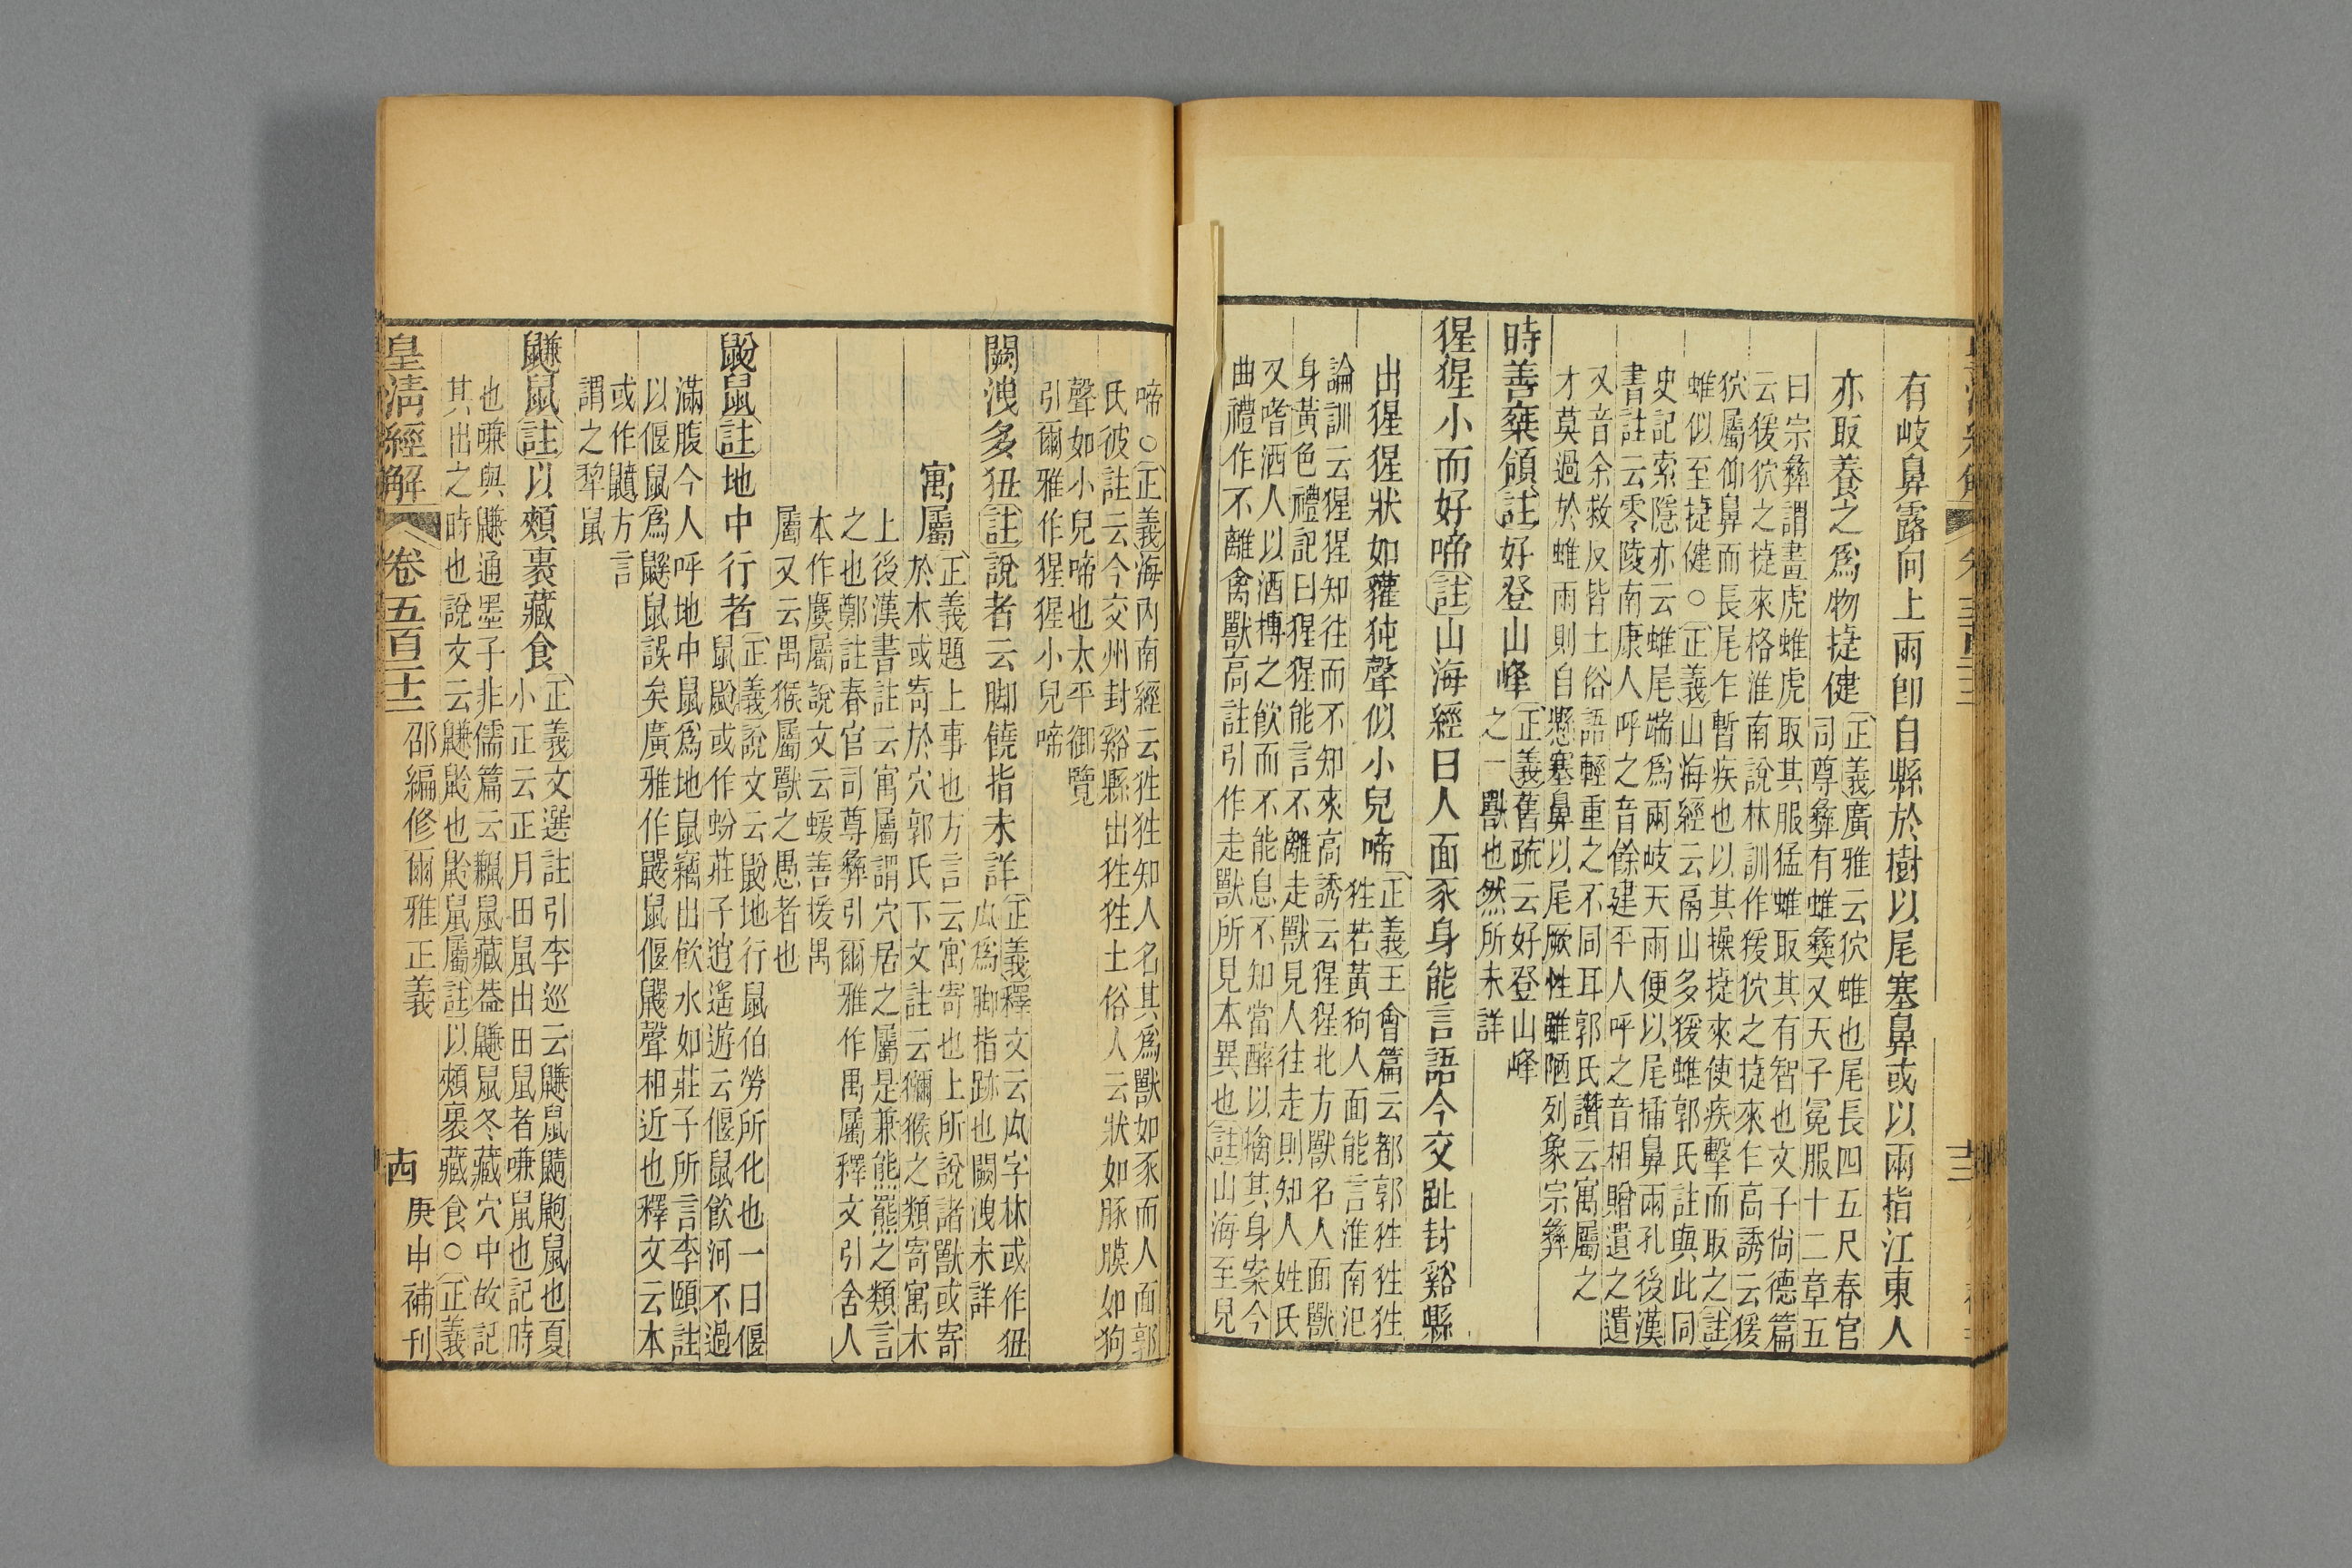 有岐鼻露向上雨卽自縣於樹以尾塞鼻或以兩指江東人
亦取養之爲物捷健
正義廣雅云狖蜼也尾長四五尺春官
司尊彝有蜼彝又天子冕服十二章五
曰宗彝謂畫虎蜼虎取其服猛蜼取其有智也文子尙德篇
云猨狖之捷來格淮南說林訓作猨狖之捷來乍高誘云猨
狖屬仰鼻而長尾乍暫疾也以其操捷來使疾擊而取之註
蜼似至捷健○正義山海經云鬲山多猨蜼郭氏註與此同
史記索隱亦云蜼尾端爲兩岐天雨便以尾插鼻兩孔後漢
書註云零陵南康人呼之音餘建平人呼之音相贈遺之遺
又音余救反皆土俗語輕重之不同耳郭氏讚云寓屬之
才莫過於蜼雨則自懸塞鼻以尾厥性雖陋列象宗彝
時善椉領註好登山峰
正義舊疏云好登山峰
之一獸也然所未詳
猩猩小而好啼註山海經曰人面豕身能言語今交趾封谿縣
出猩猩狀如貛㹠聲似小兒啼
正義王會篇云都郭狌狌
狌若黃狗人面能言淮南氾
論訓云猩猩知往而不知來高誘云猩猩北方獸名人面獸
身黃色禮記曰猩猩能言不離走獸見人往走則知人姓氏
又嗜酒人以酒搏之飮而不能息不知當醉以擒其身案今
曲禮作不離禽獸高註引作走獸所見本異也註山海至兒
啼○正義海內南經云狌狌知人名其爲獸如豕而人面郭
氏彼註云今交州封谿縣出狌狌土俗人云狀如豚腹如狗
聲如小兒啼也太平御覽
引爾雅作猩猩小兒啼
闕洩多狃註說者云脚饒指未詳
正義釋文云厹字林或作狃
厹爲脚指跡也闕洩未詳
寓屬
正義題上事也方言云寓寄也上所說諸獸或寄
於木或寄於穴郭氏下文註云獼猴之類寄寓木
上後漢書註云寓屬謂穴居之屬是兼熊羆之類言
之也鄭註春官司尊彝引爾雅作禺屬釋文引舍人
本作麌屬說文云蝯善援禺
屬又云禺猴屬獸之愚者也
鼢鼠註地中行者
正義說文云鼢地行鼠伯勞所化也一曰偃
鼠鼢或作蚡莊子逍遙遊云偃鼠飮河不過
滿腹今人呼地中鼠爲地鼠竊出飮水如莊子所言李頤註
以偃鼠爲鼷鼠誤矣廣雅作鼹鼠偃鼹聲相近也釋文云本
或作𪖂方言
謂之犂鼠
鼸鼠註以頰裏藏食
正義文選註引李巡云鼸鼠䶅䶌鼠也夏
小正云正月田鼠出田鼠者嗛鼠也記時
也嗛與鼸通墨子非儒篇云鼸鼠藏葢鼸鼠冬藏穴中故記
其出之時也說文云鼸䶃也䶃鼠屬註以頰裏藏食○正義
皇淸經解 卷五百二十二 邵編修爾雅正義 古 庚申補刊